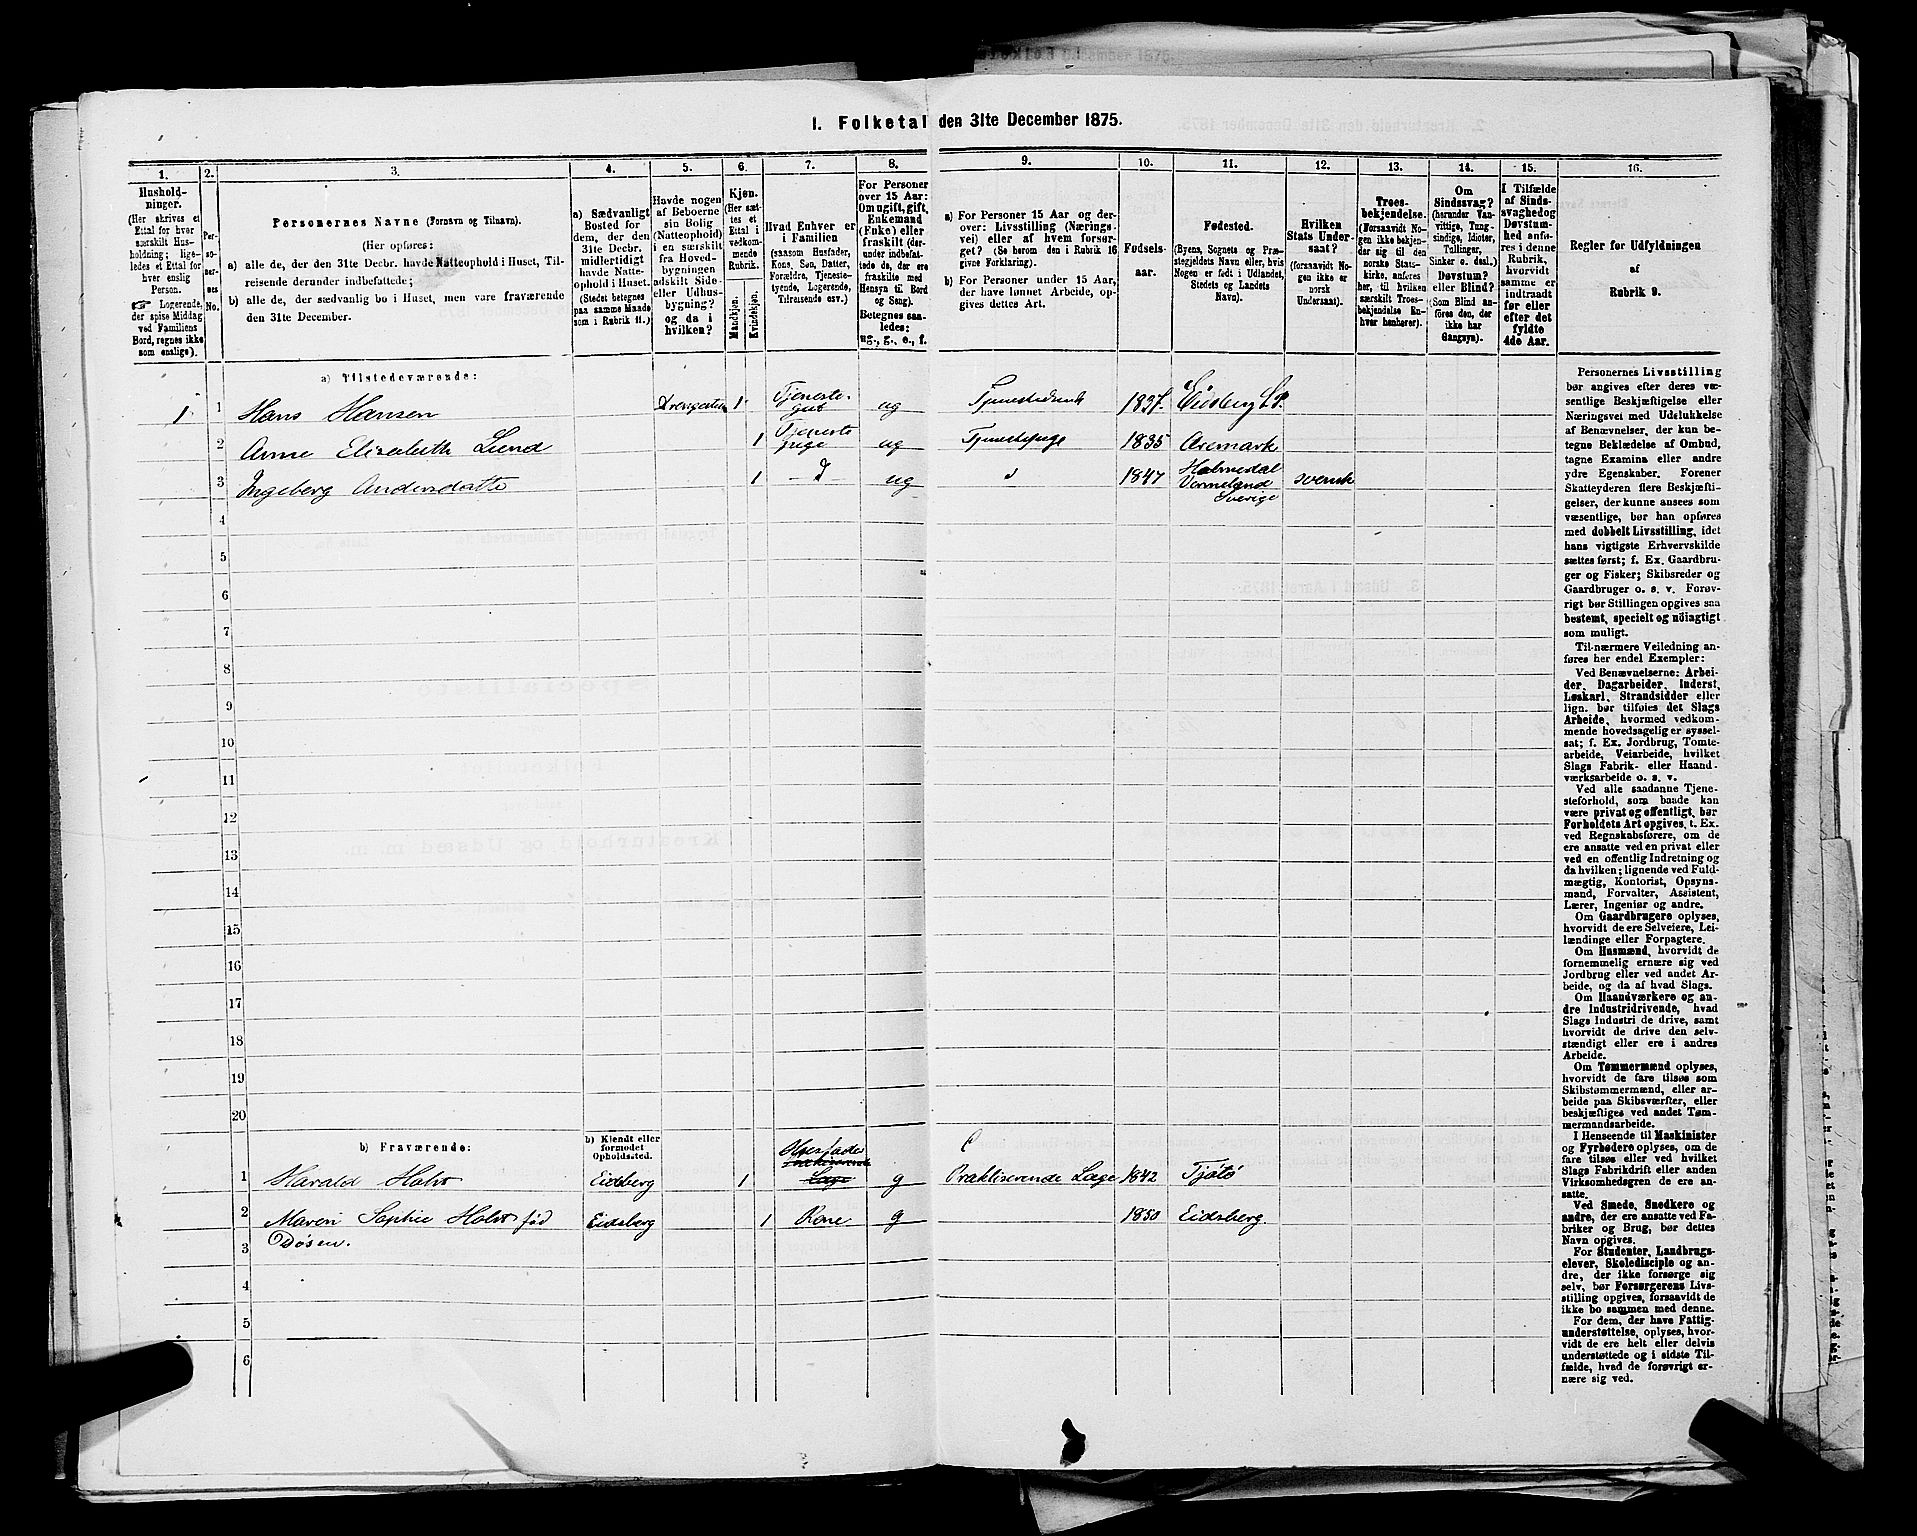 I. Folketal den 31te December 1875.
1.
Hushold-
ninger.
(Her skrives et
Ettal for hver
særskilt Hus-
holdning; lige-
ledes et Ettal for
hver enslig
Person.
Logerende,
der spise Middag
ved Familiens
Bord, regnes ikke
som enslige).
2.
Per-
so-
ner-
nes
No.
3.
Personernes Navne (Fornavn og Tilnavn).
(Her opføres:
a) alle de, der den 31te Decbr. havde Natteophold i Huset, Til-
reisende derunder indbefattede;
b) alle de, der sædvanlig bo i Huset, men vare fraværende
den 31te December.
4.
a) Sædvanligt
Bosted for
dem, der den
31te Decbr.
midlertidigt
havde Natte-
ophold i Huset.
(Stedet betegnes
paa samme Maade
som i Rubrik 11.)
5.
Havde nogen
af Beboerne
sin Bolig
(Natteophold)
i en særskilt
fra Hoved-
bygningen
adskilt Side-
eller Udhus-
bygning?
og da i
hvilken?
6.
Kjøn.
(Her sæt-
tes et
Ettal i
vedkom-
mende
Rubrik.
Mandkjøn.
Kvindekjøn.
7.
Hvad Enhver er
i Familien
(saasom Husfader,
Kone, Søn, Datter,
Forældre, Tjeneste-
tyende, Logerende,
Tilreisende osv.)
8.
For Personer
over 15 Aar:
Om ugift, gift,
Enkemand
(Enke) eller
fraskilt (der-
under indbefat-
tede de, der ere
fraskilte med
Hensyn til Bord
og Seng).
Betegnes saa-
ledes:
ug., g., e., f.
9.
a) For Personer 15 Aar og der-
over: Livsstilling (Nærings-
vei) eller af hvem forsør-
get? (Se herom den i Rubrik 16
givne Forklaring).
b) For Personer under 15 Aar,
der have lønnet Arbeide, op-
gives dettes Art.
10.
Fødsels-
aar.
11.
Fødested.
(Byens, Sognets og Præ-
stegjeldets Navn, eller, hvis
Nogen er født i Udlandet,
Stedets og Landets
Navn).
12.
Hvilken
Stats Under-
saat?
(forsaavidt No-
gen ikke er
norsk
Undersaat).
13.
Troes-
bekjendelse.
(Forsaavidt No-
gen ikke bekjen-
der sig til den
norske Stats-
kirke, anføres
her, til hvilken
særskilt Troes-
bekjendelse En-
hver henhører).
14.
Om
Sindssvag?
(herunder Van-
vittige, Tung-
sindige, Idioter,
Tullinger,
Sinker o. desl.)
Døvstum?
eller Blind?
(Som Blind an-
føres den, der
ikke har
Gangsyn).
15.
I Tilfælde
af Sinds-
svaghed og
Døvstum-
hed anfø-
res i denne
Rubrik,
hvorvidt
samme er
indtraadt
før eller
efter det
fyldte
4de Aar.
16.
Regler for Udfyldningen
af
Rubrik 9.
a) Tilstedeværende:
1 1 Hans Hansen 1 Tjeneste-
gut ug 1837. Eidsberg
2 Anne Elisabeth Lund 1 Tjeneste
pige ug Tjenestepige 1835 Aremark
3 Ingeborg Andersdatter 1 ug 1847 Holmedal
Vermeland
Sverige svensk
4
5
6
7
8
9
10
11
12
13
14
15
16
17
18
19
20
b) Fraværende:
b) Kjendt eller
formodet
Opholdssted.
1 Harald Holst Eidsberg 1 Husfader g Praktiserende Læge 1842 Tjøtø
2 Maren Sophie Holst fød Eidsberg 1 Kone g 1850 Eidsberg.
3 Døsen.
4
5
6
Personernes Livsstilling
bør angives efter deres væ-
sentlige Beskjæftigelse eller
Næringsvei med Udelukkelse
af Benævnelser, der kun be-
tegne Beklædelse af Ombud,
tagne Examina eller andre
ydre Egenskaber. Forener
Skatteyderen flere Beskjæfti-
gelser, der kunne ansees som
væsentlige, bør han opføres
med dobbelt Livsstilling, idet
hans vigtigste Erhvervskilde
sættes først; f. Ex. Gaardbru-
ger og Fisker; Skibsreder og
Gaardbruger o. s. v. Forøv-
rigt bør Stillingen opgives saa
bestemt, specielt og nøiagtigt
som muligt.
Til nærmere Veiledning an-
føres her endel Exempler:
Ved Benævnelserne: Arbei-
der, Dagarbeider, Inderst,
Løskarl, Strandsidder eller
lign. bør tilføies det Slags
Arbeide, hvormed vedkom-
mende hovedsagelig er syssel-
sat; f. Ex. Jordbrug, Tomte-
arbeide, Veiarbeide, hvilket
Slags Fabrik- eller Haand-
værksarbeide o. s. v.
Ved alle saadanne Tjene-
steforhold, som baade kan
være privat og offentligt, bør
Forholdets Art opgives, t. Ex.
ved Regnskabsførere, om de
ere ansatte ved en privat eller
ved en offentlig Indretning og
da hvilken; lignende ved Fuld-
mægtig, Kontorist, Opsyns-
mand, Forvalter, Assistent,
Lærer, Ingeniør og andre.
Om Gaardbrugere oplyses,
hvorvidt de ere Selveiere, Lei-
lændinge eller Forpagtere.
Om Husmænd, hvorvidt de
fornemmelig ernære sig ved
Jordbrug eller ved andet Ar-
beide, og da af hvad Slags.
Om Haandværkere og an-
dre Industridrivende, hvad
Slags Industri de drive, samt
hvorvidt de drive den selv-
stændigt eller ere i andres
Arbeide.
Om Tømmermænd oplyses,
hvorvidt de fare tilsøs som
Skibstømmermænd, eller ar-
beide paa Skibsværfter, eller
beskjæftiges ved andet Tøm-
mermandsarbeide.
I Henseende til Maskinister
og Fyrbødere oplyses, om de
fare tilsøs eller ved hvilket
Slags Fabrikdrift eller anden
Virksomhedsgren de ere an-
satte.
Ved Smede, Snedkere og
andre, der ere ansatte ved Fa-
briker og Brug, bør dettes
Navn opgives.
For Studenter, Landbrugs-
elever, Skoledisciple og an-
dre, der ikke forsørge sig
selv, bør Forsørgerens Livs-
stilling opgives, forsaavidt de
ikke bo sammen med denne.
For dem, der have Fattig-
understøttelse, oplyses, hvor-
vidt de ere helt eller delvis
understøttede og i sidste Til-
fælde, hvad de forøvrigt er-
nære sig ved.